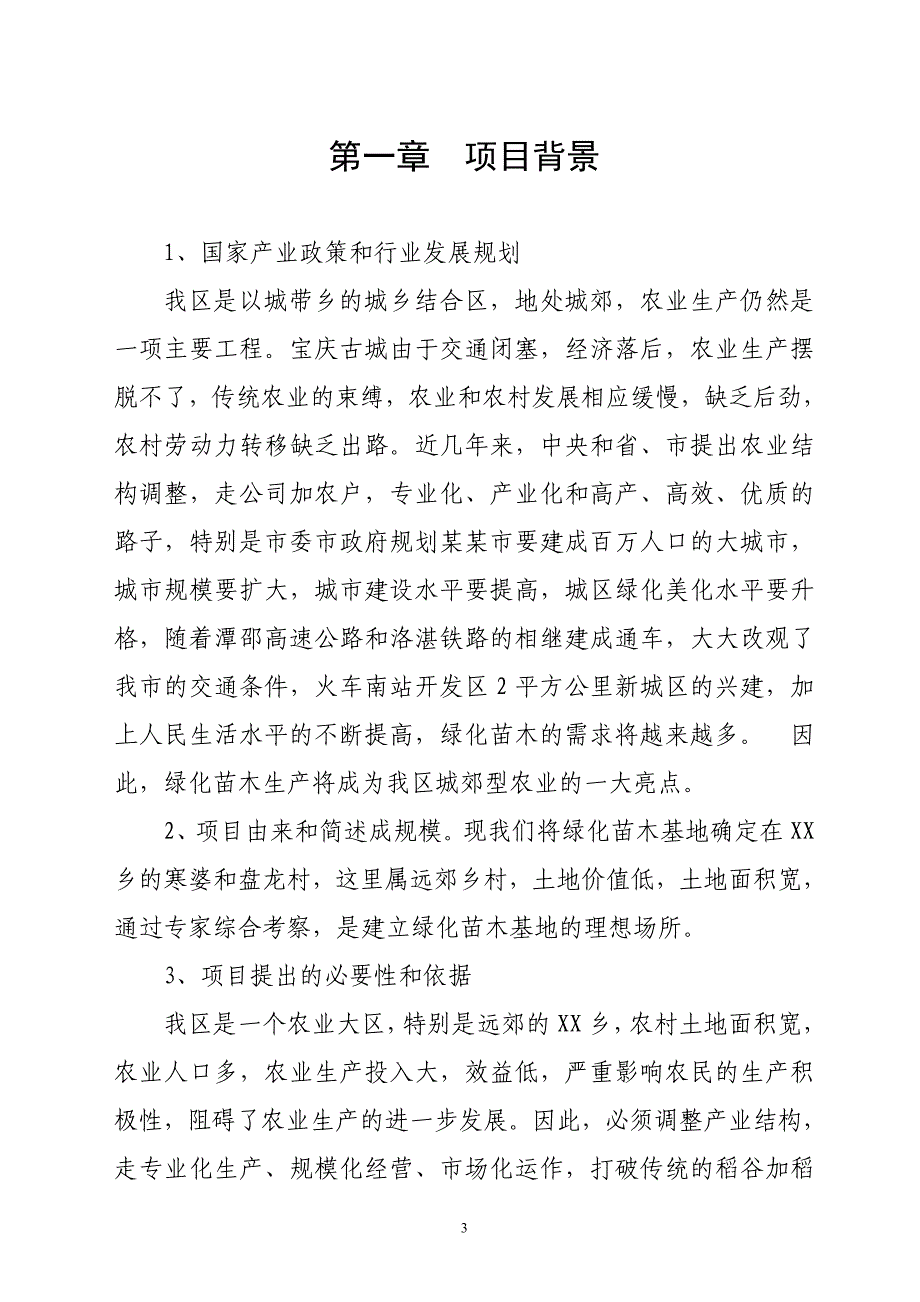 第一章　项目背景
1、国家产业政策和行业发展规划
我区是以城带乡的城乡结合区，地处城郊，农业生产仍然是
一项主要工程。宝庆古城由于交通闭塞，经济落后，农业生产摆
脱不了，传统农业的束缚，农业和农村发展相应缓慢，缺乏后劲，
农村劳动力转移缺乏出路。近几年来，中央和省、市提出农业结
构调整，走公司加农户，专业化、产业化和高产、高效、优质的
路子，特别是市委市政府规划某某市要建成百万人口的大城市，
城市规模要扩大，城市建设水平要提高，城区绿化美化水平要升
格，随着潭邵高速公路和洛湛铁路的相继建成通车，大大改观了
我市的交通条件，火车南站开发区 2 平方公里新城区的兴建，加
上人民生活水平的不断提高，绿化苗木的需求将越来越多。　因
此，绿化苗木生产将成为我区城郊型农业的一大亮点。
2、项目由来和简述成规模。现我们将绿化苗木基地确定在 XX
乡的寒婆和盘龙村，这里属远郊乡村，土地价值低，土地面积宽，
通过专家综合考察，是建立绿化苗木基地的理想场所。
3、项目提出的必要性和依据
我区是一个农业大区，特别是远郊的 XX 乡，农村土地面积宽，
农业人口多，农业生产投入大，效益低，严重影响农民的生产积
极性，阻碍了农业生产的进一步发展。因此，必须调整产业结构，
走专业化生产、规模化经营、市场化运作，打破传统的稻谷加稻
3